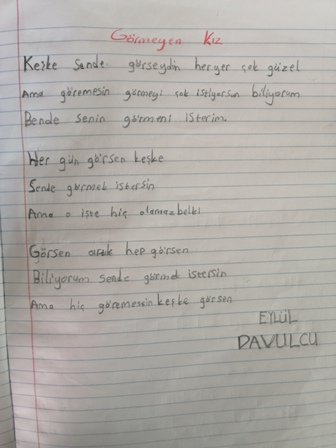 Görmeyen Kız
Keşke Sende görseydin her yer çok güzel
Ama göremesin görmeyi çok istiyorsun biliyorum
Bende senin görmeni isterim
Her gün görsen keşke
Sende görmek istersin
Ama o işte hiç olamaz belki
Görsen hep görsen
Biliyorum sende görmek istersin
Ama hiç göremessin keşke görsen
EYLÜL
DAVULCU